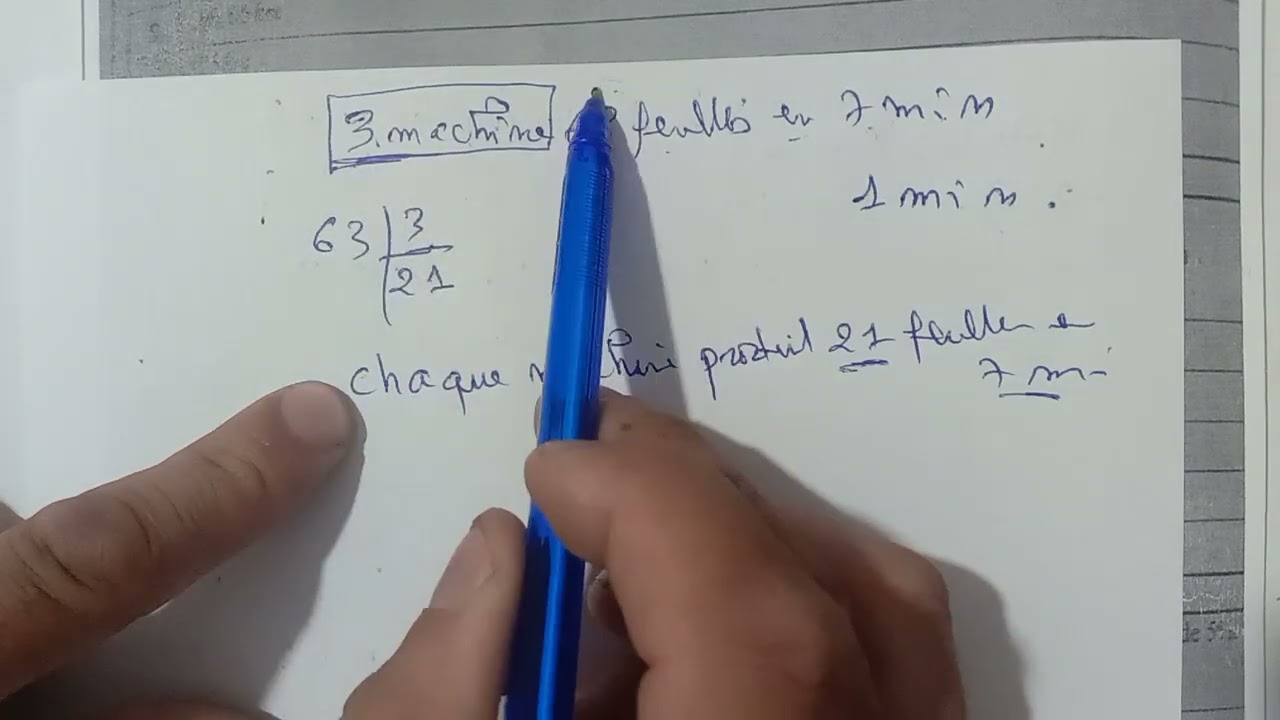 3.machine feuilles en 7 min
1 min .
63 3
21
chaque produit 21 feuilles en
7 mi